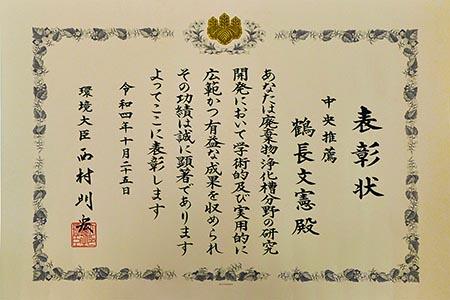 表彰状
中央推薦
鶴長文憲殿
あなたは廃棄物浄化槽分野の研究
開発において学術的及び実用的に
広範かつ有益な成果を収められ
その功績は誠に顕著であります
よってここに表彰します
令和四年十月二十五日
環境大臣 西村明宏